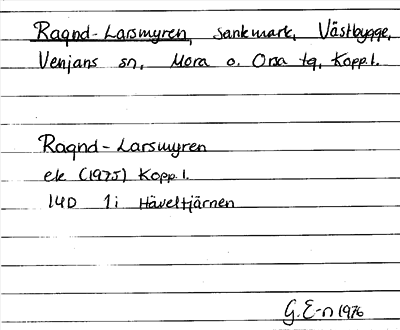 Ragnd-Larsmyren, sankmark, Västbygge,
Venjans sn, Mora o. Orsa tg, Kopp.l.
Ragnd-Larsmyren
ek (1975) Kopp.l.
14D 1i Häveltjärnen
G. E-n 1976